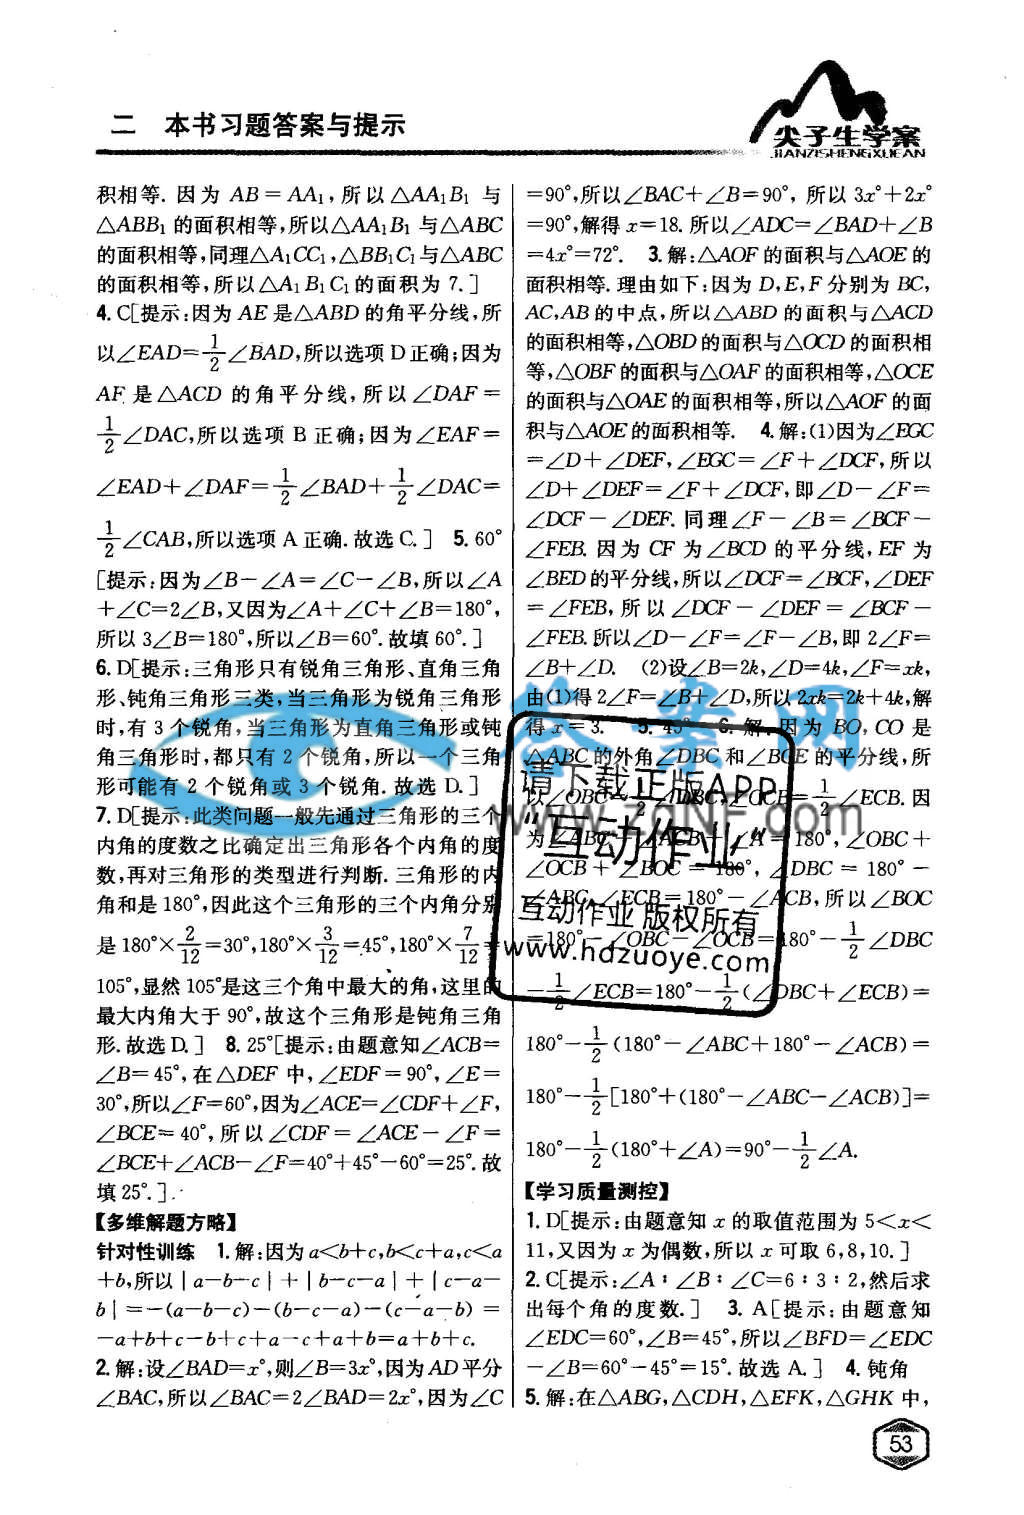 二 本书习题答案与提示
尖子生学案
JIANZISHENGXUEAN
积相等. 因为 AB=AA₁,所以△AA₁B₁ 与
△ABB₁ 的面积相等,所以△AA₁B₁ 与△ABC
的面积相等,同理△A₁CC₁,△BB₁C₁与△ABC
的面积相等,所以△A₁B₁C₁的面积为 7.]
4. C[提示:因为 AE 是△ABD 的角平分线,所
以∠EAD=1/2∠BAD,所以选项 D 正确;因为
AF 是△ACD 的角平分线,所以∠DAF=
1/2∠DAC,所以选项 B 正确;因为∠EAF=
∠EAD+∠DAF=1/2∠BAD+1/2∠DAC=
1/2∠CAB,所以选项 A 正确. 故选 C.] 5. 60°
[提示:因为∠B-∠A=∠C-∠B,所以∠A
+∠C=2∠B,又因为∠A+∠C+∠B=180°,
所以 3∠B=180°,所以∠B=60°. 故填 60°.]
6. D[提示:三角形只有锐角三角形、直角三角
形、钝角三角形三类,当三角形为锐角三角形
时,有 3 个锐角,当三角形为直角三角形或钝
角三角形时,都只有 2 个锐角,所以一个三角
形可能有 2 个锐角或 3 个锐角. 故选 D.]
7. D[提示:此类问题一般先通过三角形的三个
内角的度数之比确定出三角形各个内角的度
数,再对三角形的类型进行判断. 三角形的内
角和是 180°,因此这个三角形的三个内角分别
是 180°×2/12=30°,180°×3/12=45°,180°×7/12=
105°,显然 105°是这三个角中最大的角,这里的
最大内角大于 90°,故这个三角形是钝角三角
形. 故选 D.] 8. 25°[提示:由题意知∠ACB=
∠B=45°,在△DEF 中,∠EDF=90°,∠E=
30°,所以∠F=60°,因为∠ACE=∠CDF+∠F,
∠BCE=40°,所以∠CDF=∠ACE-∠F=
∠BCE+∠ACB-∠F=40°+45°-60°=25°. 故
填 25°.]
【多维解题方略】
针对性训练 1. 解:因为 a<b+c,b<c+a,c<a
+b,所以|a-b-c|+|b-c-a|+|c-a-
b|=-(a-b-c)-(b-c-a)-(c-a-b)=
-a+b+c-b+c+a-c+a+b=a+b+c.
2. 解:设∠BAD=x°,则∠B=3x°,因为 AD 平分
∠BAC,所以∠BAC=2∠BAD=2x°,因为∠C
=90°,所以∠BAC+∠B=90°,所以 3x°+2x°
=90°,解得 x=18. 所以∠ADC=∠BAD+∠B
=4x°=72°. 3. 解:△AOF 的面积与△AOE 的
面积相等. 理由如下:因为 D,E,F 分别为 BC,
AC,AB 的中点,所以△ABD 的面积与△ACD
的面积相等,△OBD 的面积与△OCD 的面积相
等,△OBF 的面积与△OAF 的面积相等,△OCE
的面积与△OAE 的面积相等,所以△AOF 的面
积与△AOE 的面积相等. 4. 解:(1)因为∠EGC
=∠D+∠DEF,∠EGC=∠F+∠DCF,所以
∠D+∠DEF=∠F+∠DCF,即∠D-∠F=
∠DCF-∠DEF. 同理∠F-∠B=∠BCF-
∠FEB. 因为 CF 为∠BCD 的平分线,EF 为
∠BED 的平分线,所以∠DCF=∠BCF,∠DEF
=∠FEB,所以∠DCF-∠DEF=∠BCF-
∠FEB. 所以∠D-∠F=∠F-∠B,即 2∠F=
∠B+∠D. (2)设∠B=2k,∠D=4k,∠F=xk,
由(1)得 2∠F=∠B+∠D,所以 2xk=2k+4k,解
得 x=3. 5. 45° 6. 解:因为 BO,CO 是
△ABC 的外角∠DBC 和∠BCE 的平分线,所
以∠OBC=1/2∠DBC,∠OCB=1/2∠ECB. 因
为∠ABC+∠ACB+∠A=180°,∠OBC+
∠OCB+∠BOC=180°,∠DBC=180°-
∠ABC,∠ECB=180°-∠ACB,所以∠BOC
=180°-∠OBC-∠OCB=180°-1/2∠DBC
-1/2∠ECB=180°-1/2(∠DBC+∠ECB)=
180°-1/2(180°-∠ABC+180°-∠ACB)=
180°-1/2[180°+(180°-∠ABC-∠ACB)]=
180°-1/2(180°+∠A)=90°-1/2∠A.
【学习质量测控】
1. D[提示:由题意知 x 的取值范围为 5<x<
11,又因为 x 为偶数,所以 x 可取 6,8,10.]
2. C[提示:∠A∶∠B∶∠C=6∶3∶2,然后求
出每个角的度数.] 3. A[提示:由题意知
∠EDC=60°,∠B=45°,所以∠BFD=∠EDC
-∠B=60°-45°=15°. 故选 A.] 4. 钝角
5. 解:在△ABG,△CDH,△EFK,△GHK 中,
53
答案网
请下载正版APP
"互动作业"
互动作业 版权所有
www.hdzuoye.com